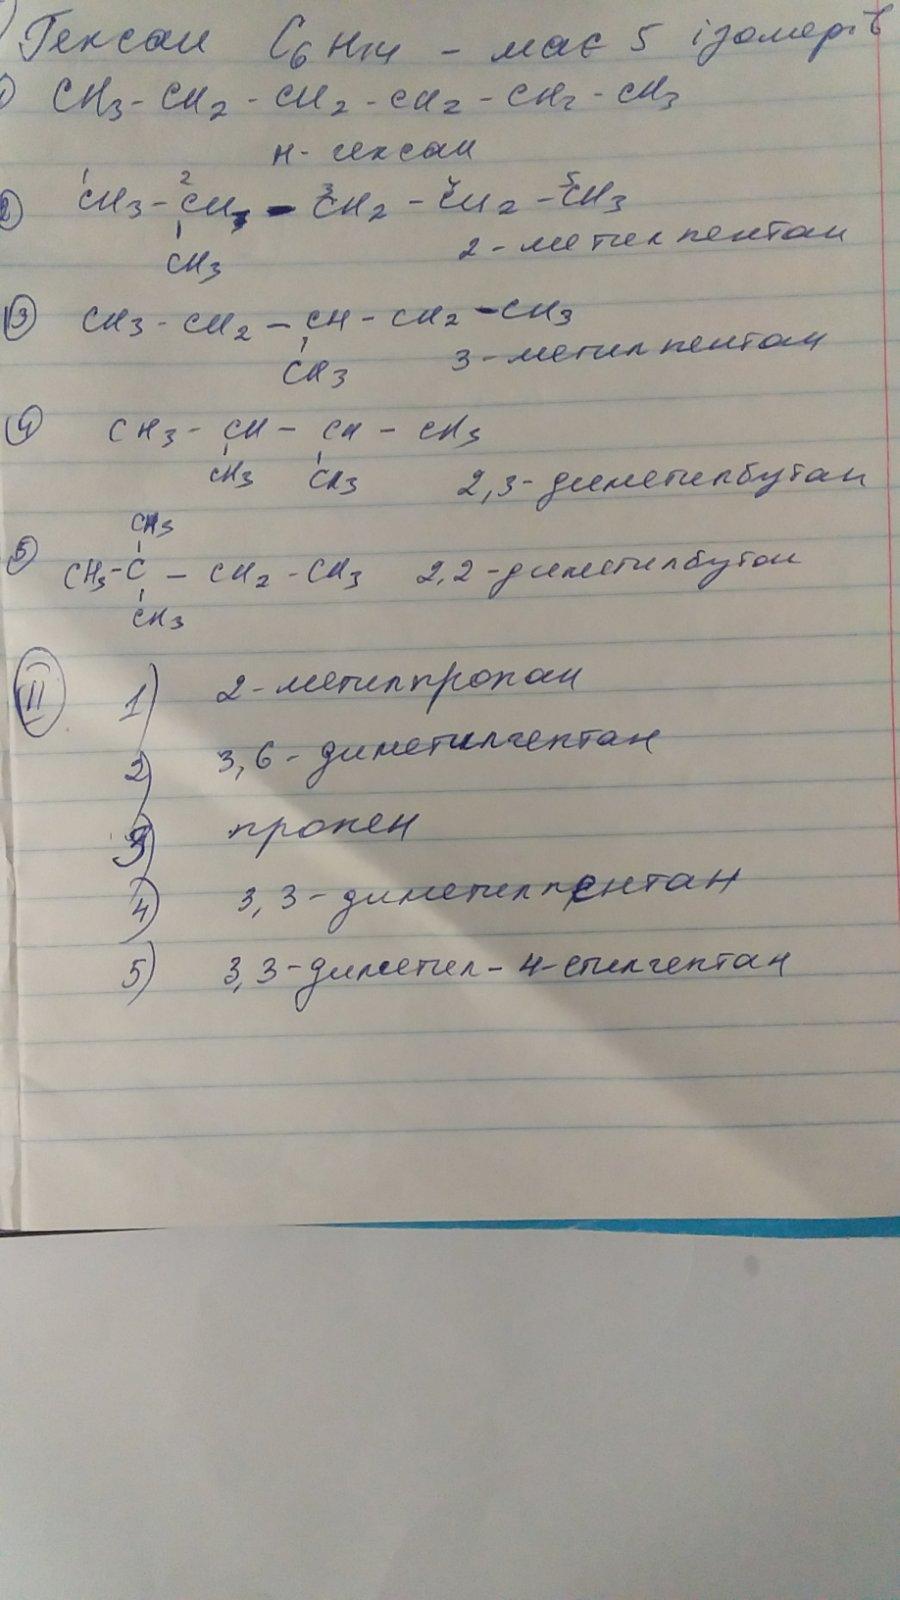 Гексан C6H14 - має 5 ізомерів
1) CH3 - CH2 - CH2 - CH2 - CH2 - CH3
н-гексан
1 2 3 4 5
2 CH3 - CH - CH2 - CH2 - CH3
CH3 2-метилпентан
3 CH3 - CH2 - CH - CH2 - CH3
CH3 3-метилпентан
4 CH3 - CH - CH - CH3
CH3 CH3 2,3-диметилбутан
CH3
5 CH3 - C - CH2 - CH3 2,2-диметилбутан
CH3
II 1) 2-метилпропан
2) 3,6-диметилгептан
3) пропен
4) 3,3-диметилпентан
5) 3,3-диметил-4-етилгептан